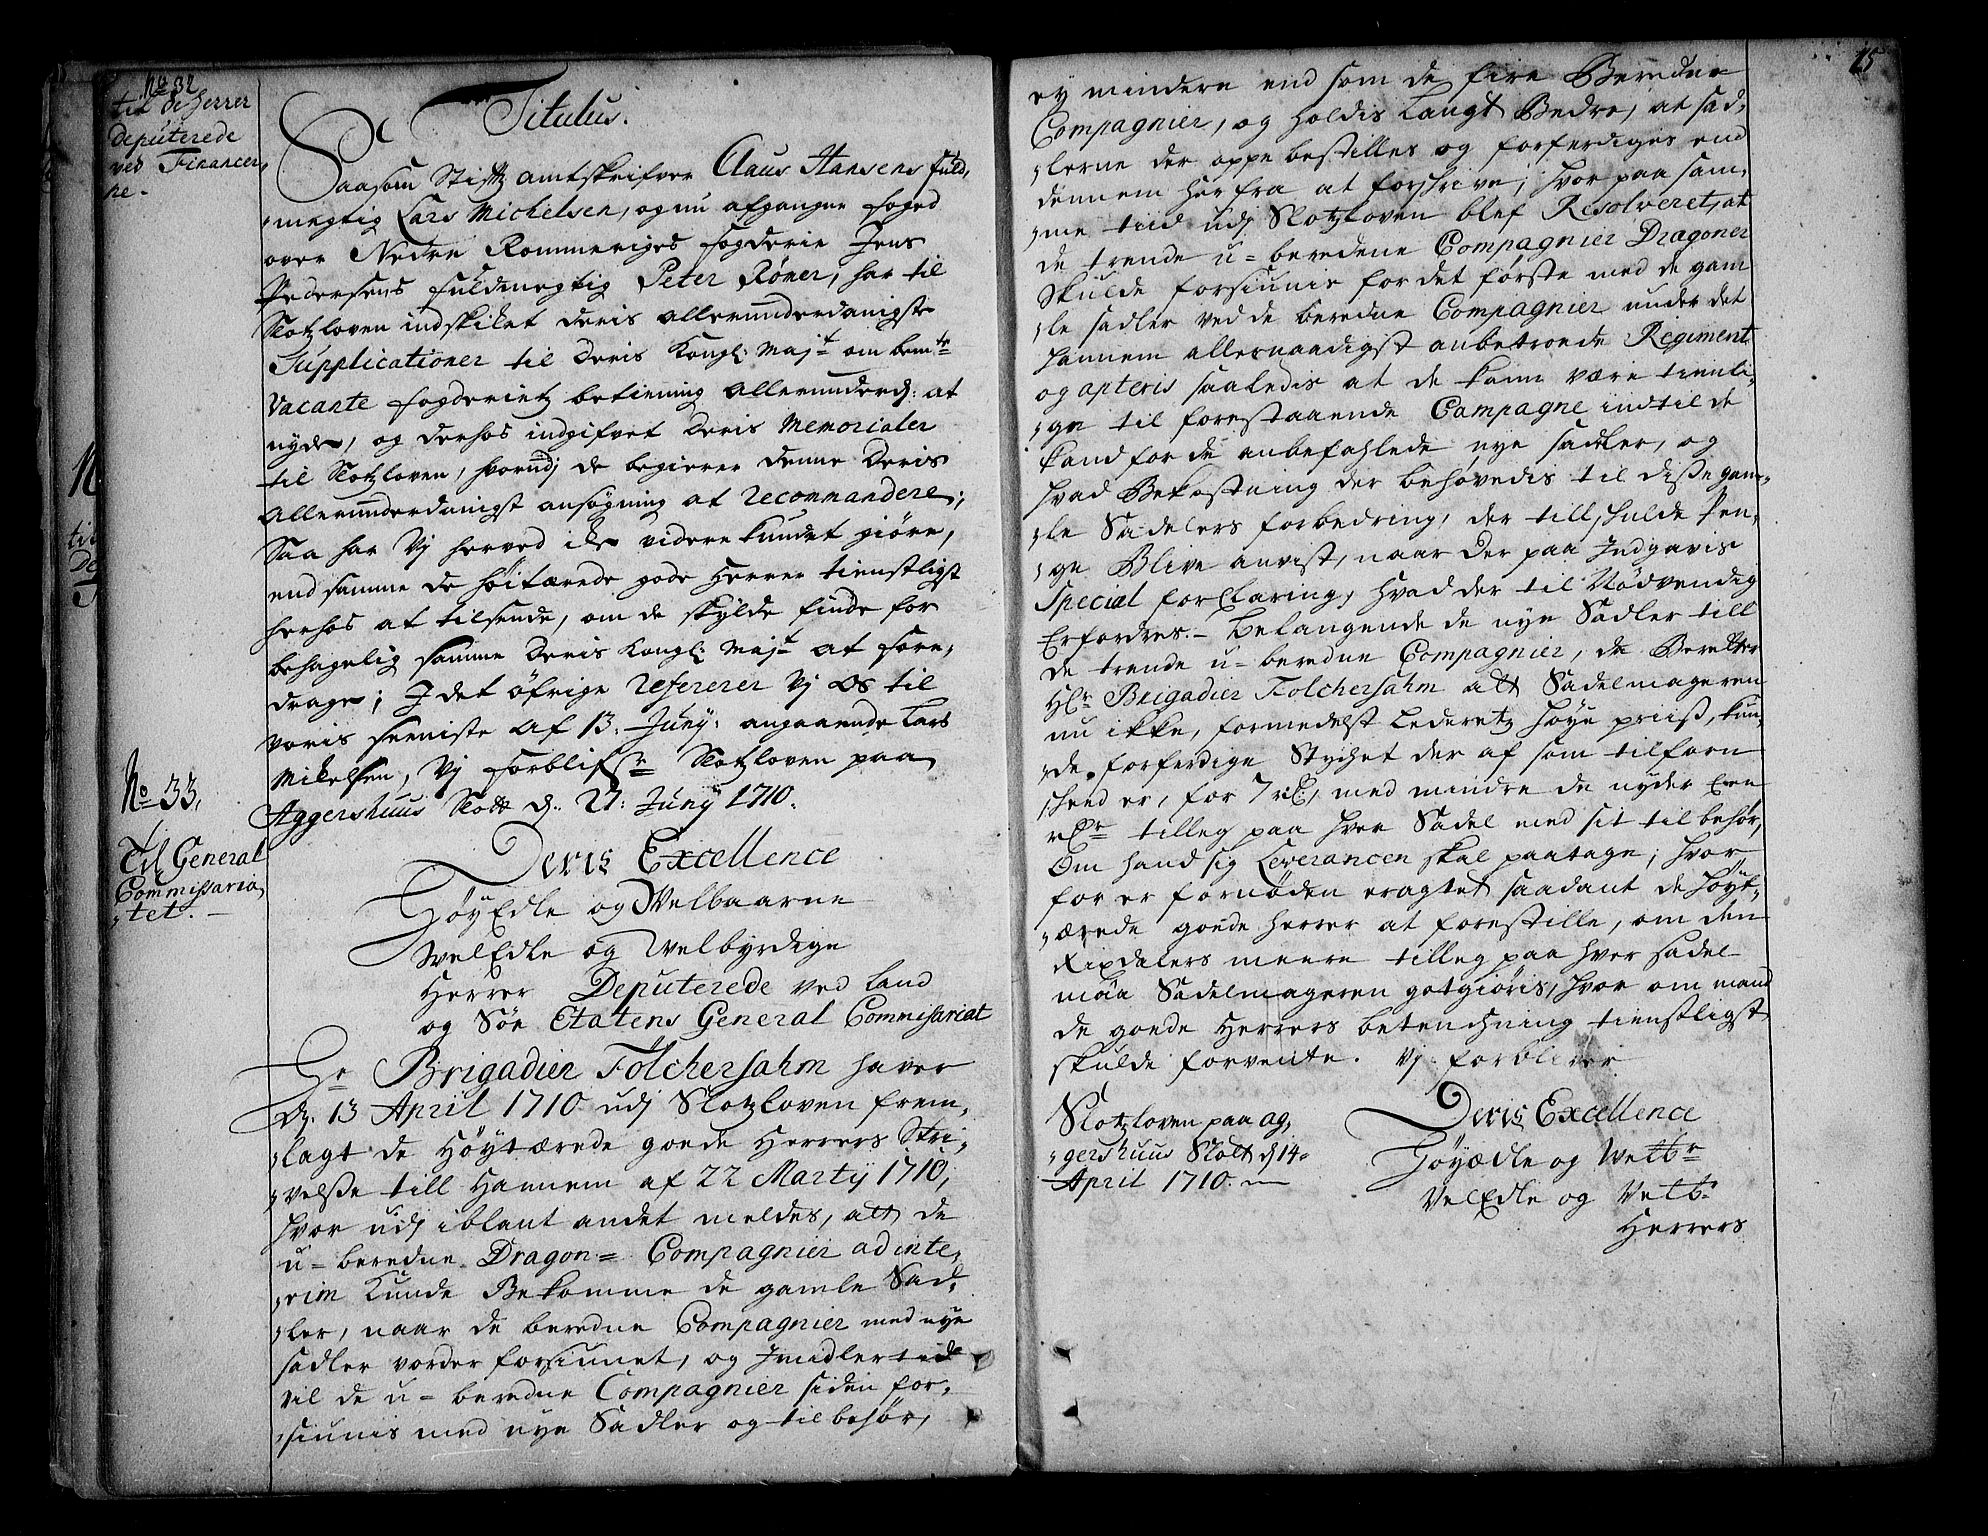 No 32
til de Herrer
Deputerede
ved Financer,
ne.
Titulus.
Saasom Stifts amtskrifver Claus Hansens fuld,
megtig Lars Michelsen, og nu afgangne foged
over Nedre Rommeriges fogderie Jens
Pedersens fuldmegtig Peter Röner, har til
Slotzloven indskiket deris allerunderdanigste
Supplicationer til Deris Kongl: Majt om bemte
Vacante fogderietz betiening allerunderd: at
nyde, og derhos indgifvet deris Memorialer
til Slotzloven, hvorudj de begierer denne deris
allerunderdanigst ansögning at recommandere;
Saa har Vj herved ike videre kundet giöre,
end samme de höitærede gode Herrer tienstligst
herhos at tilsende, om de skylde finde for
behagelig samme Deris Kongl: Majt at fore,
drage; I det öfrige refererer Vj os til
voris seeniste af 13. Junij: angaaende Lars
Mikelsen, Vj forblifr Slotzloven paa
Aggershuus Slott d. 21: Junij 1710.
No 33.
Til General
Commissaria,
tet.
Deris Excellence
HöyEdle og Welbaarne
WelEdle og Welbyrdige
Herrer Deputerede ved Land
og Söe Etatens General Commissariat
Hr Brigadier Fölchersahm haver
d. 13 April 1710 udj Slotzloven frem,
lagt de Höytærede goede Herrers Skri,
velse till Hannem af 22 Martij 1710,
hvor udj iblant andet meldes, att de
u-beredne Dragon= Compagnier ad inte,
rim Kunde Bekomme de gamle Sad,
ler, naar de beredne Compagnier med nye
sadler vorder forsiunet, og Imidlertide
vil de u-beredne Compagnier siden for,
siunis med nye Sadler og tilbehör,
15
ey mindere end som de fire Beredne
Compagnier, og holdis langt Bedre, at sad,
lerne der oppe bestilles og forferdiges end
dennem herfra at forskrive; hvor paa sam,
me tiid udj Slotzloven blef Resolveret, at
de trende u=beredene Compagnier Dragoner
Skulde forsiunis for det förste med de gam
le sadler ved de beredne Compagnier under det
hannem allernaadigst anbetroede Regiment
og apteris saaledis at de kann være tienli,
ge til forestaaende Campagne indtil de
kand faae de anbefahlede nye sadler, og
hvad Bekostning der behövedis til disse gam,
le Sadelers forbedring, der till skulde Pen,
ge Blive anvist, naar der paa Indgavis
Special forklaring, hvad der til Nödvendig
Erfordres. Belangende de nye Sadler till
de trende u-beredne Compagnier, da Beretter
Hr Brigadier Folchersahm att Sadelmageren
nu ikke, formedelst Lederetz höye priiss, kun,
de forferdige Stychet der af som tilforn
skeed er, for 7 rd, med mindre de nyder Een
rdr tilleg paa hver Sadel med sit til behör,
Om hand sig Leverancen skal paatage; hvor
for er fornöden eragtet saadant de höyt,
ærede goede Herrer at forestille, om den
Rixdalers meere tilleg paa hver sadel
maa Sadelmageren gotgiöris, hvor om mand
de goede Herrers betenchning tienstligst
skulde forvente. Vj forbliver
Deris Excellence
HöyÆdle og Welbr
VelEdle og Velb
Herrers
Slotzloven paa Ag,
gershuus Slott d 14
April 1710.